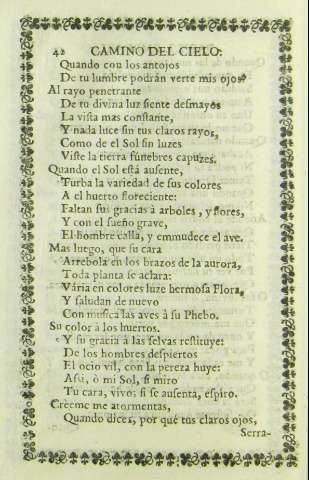 42 CAMINO DEL CIELO.
Quando con los antojos
De tu lumbre podrán verte mis ojos?
Al rayo penetrante
De tu divina luz siente desmayos
La vista mas constante,
Y nada luce sin tus claros rayos,
Como de el Sol sin luzes
Viste la tierra fúnebres capuzes.
Quando el Sol está ausente,
Turba la variedad de sus colores
A el huerto floreciente:
Faltan sus gracias à arboles, y flores,
Y con el sueño grave,
El hombre calla, y enmudece el ave.
Mas luego, que su cara
Arrebola en los brazos de la aurora,
Toda planta se aclara:
Vária en colores luze hermosa Flora,
Y saludan de nuevo
Con musica las aves à su Phebo.
Su color à los huertos.
Y su gracia à las selvas restituye:
De los hombres despiertos
El ocio vil, con la pereza huye:
Assi, ò mi Sol, si miro
Tu cara, vivo; si se ausenta, espiro.
Creeme me atormentas,
Quando dices, por qué tus claros ojos,
Serra-